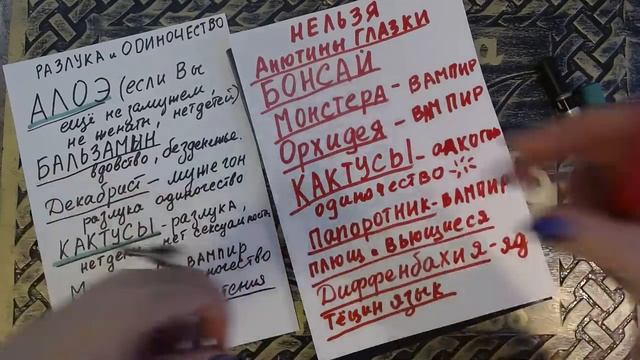 РАЗЛУКА и ОДИНОЧЕСТВО
АЛОЭ (если Вы
ещё не замужем,
не женаты, нет детей)
БАЛЬЗАМЫН
вдовство, безденежье.
Декабрист - мужегон
разлука одиночество
КАКТУСЫ - разлука,
нет детей нет сексуальности
ВАМПИР
НЕЛЬЗЯ
Анютины ГЛАЗКИ
БОНСАЙ
Монстера - ВАМПИР
Орхидея - ВАМПИР
КАКТУСЫ - алкоголь
одиночество
Папоротник - ВАМПИР
плющ. Вьющиеся
Диффенбахия - яд
Тёщин язык